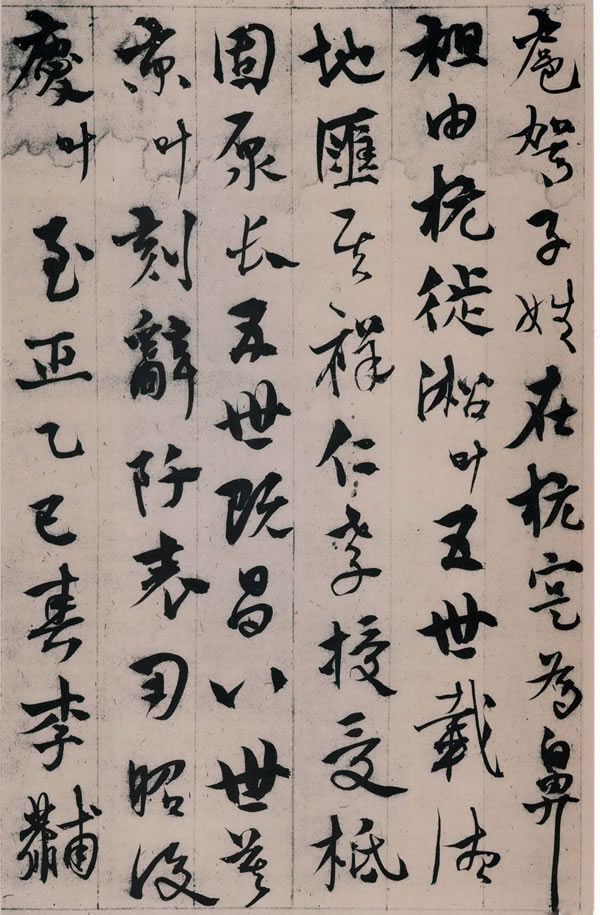 弩子姓在杭寔為鼻
祖由杭徙淞叶五世載
地匯其祥仁孝授受柢
固原長五世既昌八世莫
京叶刻辭阡表用昭後
慶叶至正乙巳春李黼